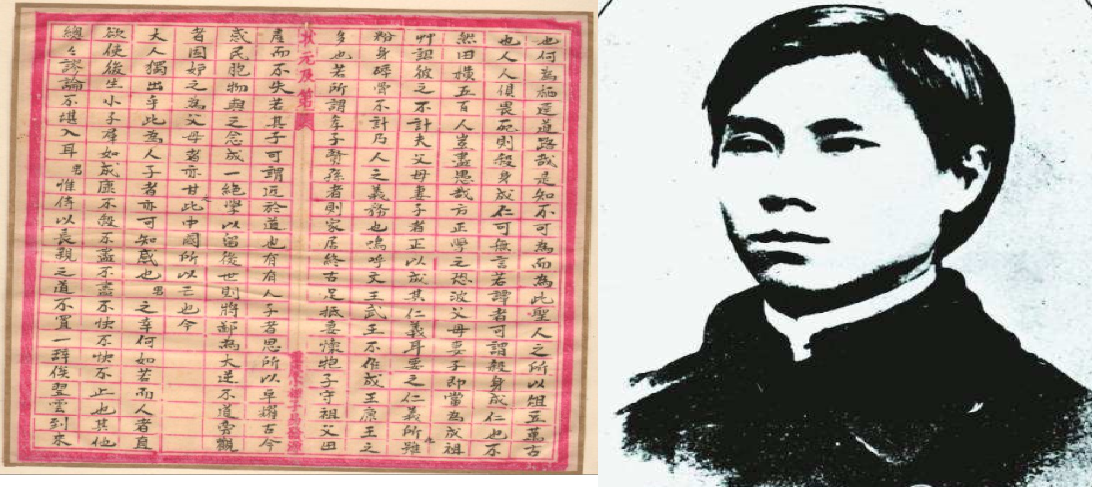 也何為栖遑道路哉是知不可為而為此聖人之所以俎五萬古
也人人俱畏死則殺身成仁可無言若譚者可謂殺身成仁也不
然田橫五百人豈盡愚哉方正學之恐波父母妻子即當為成祖
艸詔彼之不計夫父母妻子者正以成其仁義耳要之仁義所雖
粉身碎骨不計乃人之義務也嗚呼文王武王不作成王康王之
多也若所謂孝子賢孫者則家居終古足抵妻懷抱子守祖父田
狀元及第
產而不失若其子可謂近於道也有有人子者思所以卓躍古今
感民胞物與之念成一絕學以留後世則將鄙為大逆不道旁觀
者固妒之為父母者亦甘此中國所以亡也今
大人獨出乎此為人子者亦可知感也男之幸何如若而人者直
欲使後生小子如成康不殺不盡不盡不快不快不止也其他
總々謬論不堪入耳男惟侍以長親之道不置一辭俟翌雲到來